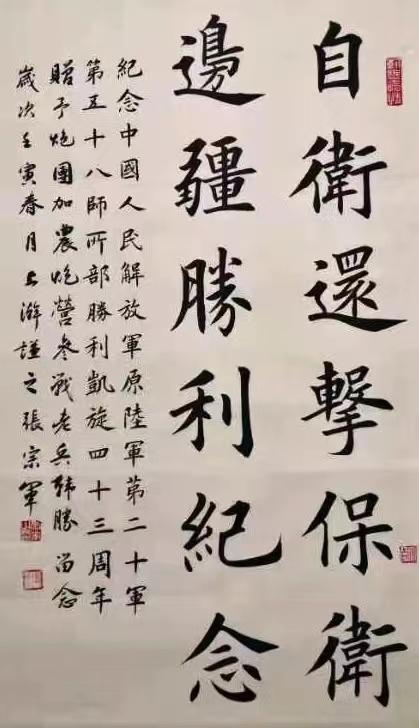 自衛還擊保衛
邊疆勝利紀念
紀念中國人民解放軍原陸軍第二十軍
第五十八師所部勝利凱旋四十三周年
贈予炮團加農炮營參戰老兵韩勝留念
歲次壬寅春月上澣謹之張宗軍